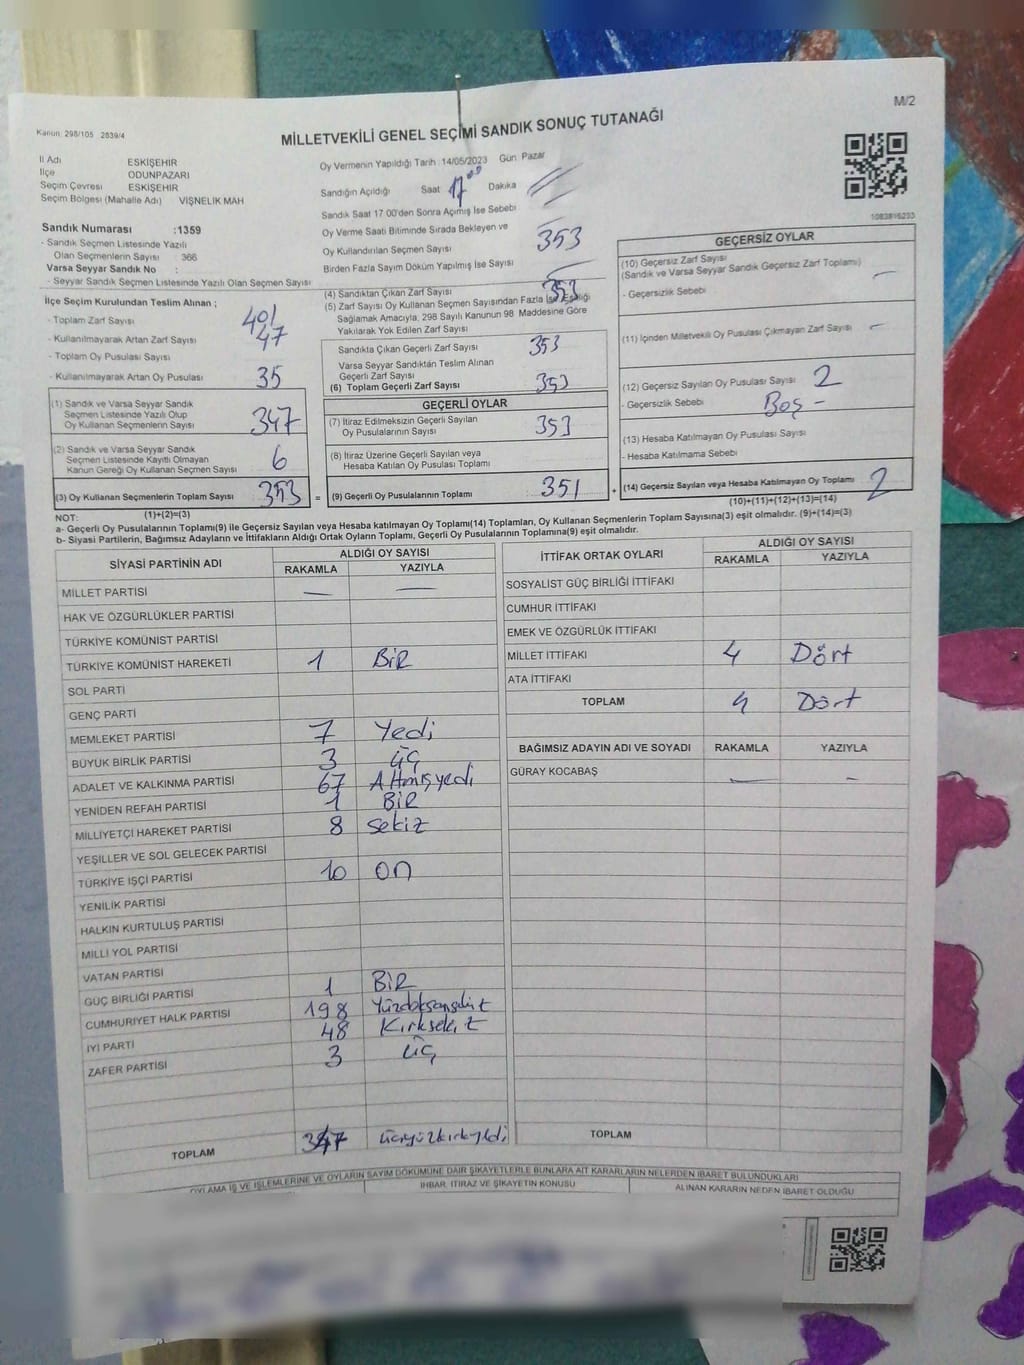 M/2
Kanun: 298/105 2839/4
MİLLETVEKİLİ GENEL SEÇİMİ SANDIK SONUÇ TUTANAĞI
İl Adı ESKİŞEHİR
İlçe ODUNPAZARI
Seçim Çevresi ESKİŞEHİR
Seçim Bölgesi (Mahalle Adı) VİŞNELİK MAH
Oy Vermenin Yapıldığı Tarih 14/05/2023 Gün Pazar
Sandığın Açıldığı Saat 17⁰⁰ Dakika
Sandık Saat 17.00'den Sonra Açımış İse Sebebi
Oy Verme Saati Bitiminde Sırada Bekleyen ve
Oy Kullandırılan Seçmen Sayısı 353
Birden Fazla Sayım Döküm Yapılmış İse Sayısı
1083816233
Sandık Numarası :1359
- Sandık Seçmen Listesinde Yazılı
Olan Seçmenlerin Sayısı 366
Varsa Seyyar Sandık No :
- Seyyar Sandık Seçmen Listesinde Yazılı Olan Seçmen Sayısı
İlçe Seçim Kurulundan Teslim Alınan ;
- Toplam Zarf Sayısı 401
- Kullanılmayarak Artan Zarf Sayısı 47
- Toplam Oy Pusulası Sayısı
- Kullanılmayarak Artan Oy Pusulası 35
(1) Sandık ve Varsa Seyyar Sandık
Seçmen Listesinde Yazılı Olup
Oy Kullanan Seçmenlerin Sayısı 347
(2) Sandık ve Varsa Seyyar Sandık
Seçmen Listesinde Kayıtlı Olmayan
Kanun Gereği Oy Kullanan Seçmen Sayısı 6
(3) Oy Kullanan Seçmenlerin Toplam Sayısı 353 =
(1)+(2)=(3)
(4) Sandıktan Çıkan Zarf Sayısı 353
(5) Zarf Sayısı Oy Kullanan Seçmen Sayısından Fazla İse Eşitliği
Sağlamak Amacıyla, 298 Sayılı Kanunun 98 Maddesine Göre
Yakılarak Yok Edilen Zarf Sayısı
Sandıkta Çıkan Geçerli Zarf Sayısı 353
Varsa Seyyar Sandıktan Teslim Alınan
Geçerli Zarf Sayısı
(6) Toplam Geçerli Zarf Sayısı 353
GEÇERLİ OYLAR
(7) İtiraz Edilmeksizin Geçerli Sayılan
Oy Pusulalarının Sayısı 353
(8) İtiraz Üzerine Geçerli Sayılan veya
Hesaba Katılan Oy Pusulası Toplamı
(9) Geçerli Oy Pusulalarının Toplamı 351 +
GEÇERSİZ OYLAR
(10) Geçersiz Zarf Sayısı
(Sandık ve Varsa Seyyar Sandık Geçersiz Zarf Toplamı)
- Geçersizlik Sebebi
(11) İçinden Milletvekili Oy Pusulası Çıkmayan Zarf Sayısı
(12) Geçersiz Sayılan Oy Pusulası Sayısı 2
- Geçersizlik Sebebi Boş -
(13) Hesaba Katılmayan Oy Pusulası Sayısı
- Hesaba Katılmama Sebebi
(14) Geçersiz Sayılan veya Hesaba Katılmayan Oy Toplamı 2
(10)+(11)+(12)+(13)=(14)
NOT:
a- Geçerli Oy Pusulalarının Toplamı(9) ile Geçersiz Sayılan veya Hesaba katılmayan Oy Toplamı(14) Toplamları, Oy Kullanan Seçmenlerin Toplam Sayısına(3) eşit olmalıdır. (9)+(14)=(3)
b- Siyasi Partilerin, Bağımsız Adayların ve İttifakların Aldığı Ortak Oyların Toplamı, Geçerli Oy Pusulalarının Toplamına(9) eşit olmalıdır.
SİYASİ PARTİNİN ADI ALDIĞI OY SAYISI
RAKAMLA YAZIYLA
MİLLET PARTİSİ — —
HAK VE ÖZGÜRLÜKLER PARTİSİ
TÜRKİYE KOMÜNİST PARTİSİ
TÜRKİYE KOMÜNİST HAREKETİ 1 BİR
SOL PARTİ
GENÇ PARTİ
MEMLEKET PARTİSİ 7 Yedi
BÜYÜK BİRLİK PARTİSİ 3 üç
ADALET VE KALKINMA PARTİSİ 67 Altmışyedi
YENİDEN REFAH PARTİSİ 1 BİR
MİLLİYETÇİ HAREKET PARTİSİ 8 sekiz
YEŞİLLER VE SOL GELECEK PARTİSİ
TÜRKİYE İŞÇİ PARTİSİ 10 on
YENİLİK PARTİSİ
HALKIN KURTULUŞ PARTİSİ
MİLLİ YOL PARTİSİ
VATAN PARTİSİ
GÜÇ BİRLİĞİ PARTİSİ 1 BİR
CUMHURİYET HALK PARTİSİ 198
İYİ PARTİ 48 Kırksekiz
ZAFER PARTİSİ 3 üç
TOPLAM 347 üçyüzkırkyedi
İTTİFAK ORTAK OYLARI ALDIĞI OY SAYISI
RAKAMLA YAZIYLA
SOSYALİST GÜÇ BİRLİĞİ İTTİFAKI
CUMHUR İTTİFAKI
EMEK VE ÖZGÜRLÜK İTTİFAKI
MİLLET İTTİFAKI 4 Dört
ATA İTTİFAKI
TOPLAM 4 Dört
BAĞIMSIZ ADAYIN ADI VE SOYADI RAKAMLA YAZIYLA
GÜRAY KOCABAŞ — –
TOPLAM
OYLAMA İŞ VE İŞLEMLERİNE VE OYLARIN SAYIM DÖKÜMÜNE DAİR ŞİKAYETLERLE BUNLARA AİT KARARLARIN NELERDEN İBARET BULUNDUKLARI
İHBAR, İTİRAZ VE ŞİKAYETİN KONUSU ALINAN KARARIN NEDEN İBARET OLDUĞU